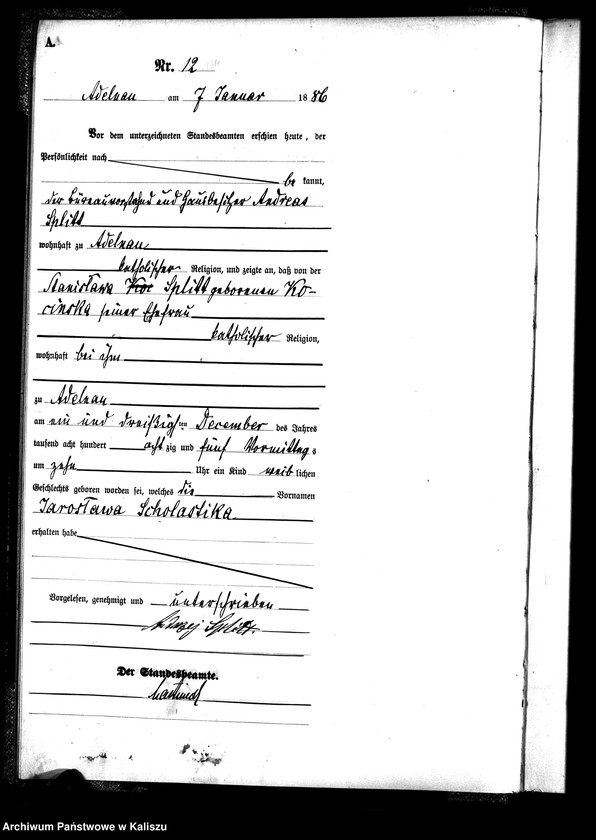 A.
Nr. 12
Adelnau am 7 Januar 1886
Vor dem unterzeichneten Standesbeamten erschien heute, der
Persönlichkeit nach
be kannt,
der Büreauvorstand und Hausbesitzer Andreas
Splitt
wohnhaft zu Adelnau
katholischer Religion, und zeigte an, daß von der
Stanisława Koc Splitt geborenen Ko-
cinska seiner Ehefrau
katholischer Religion,
wohnhaft bei ihm
zu Adelnau
am ein und dreißigsten December des Jahres
tausend acht hundert acht zig und fünf Vormittags
um zehn Uhr ein Kind weib lichen
Geschlechts geboren worden sei, welches die Vornamen
Jarosława Scholastika
erhalten habe
Vorgelesen, genehmigt und unterschrieben
Andrzej Splitt.
Der Standesbeamte.
Archiwum Państwowe w Kaliszu